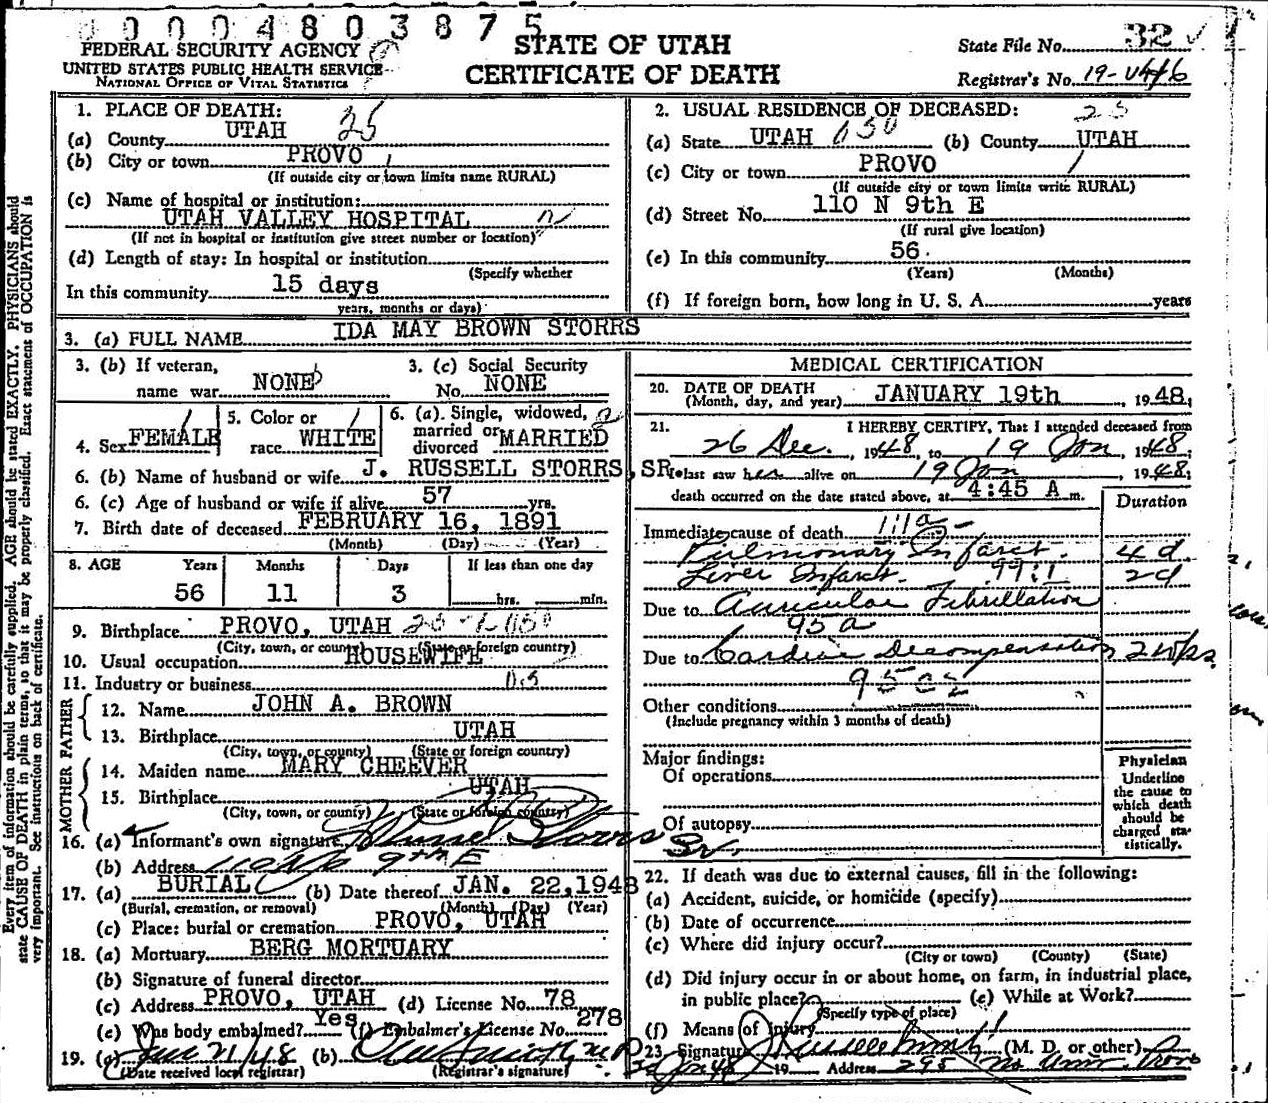 0000 4803875
FEDERAL SECURITY AGENCY
UNITED STATES PUBLIC HEALTH SERVICE
NATIONAL OFFICE OF VITAL STATISTICS
STATE OF UTAH
CERTIFICATE OF DEATH
State File No. 32
Registrar's No. 19-
1. PLACE OF DEATH: 25
(a) County UTAH
(b) City or town PROVO 1
(If outside city or town limits name RURAL)
(c) Name of hospital or institution:
UTAH VALLEY HOSPITAL
(If not in hospital or institution give street number or location)
(d) Length of stay: In hospital or institution
(Specify whether
In this community 15 days
years, months or days)
2. USUAL RESIDENCE OF DECEASED: 25
(a) State UTAH (b) County UTAH
(c) City or town PROVO 1
(If outside city or town limits write RURAL)
(d) Street No. 110 N 9th E
(If rural give location)
(e) In this community 56.
(Years) (Months)
(f) If foreign born, how long in U. S. A. years
3. (a) FULL NAME IDA MAY BROWN STORRS
3. (b) If veteran, name war NONE
3. (c) Social Security No. NONE
4. Sex FEMALE 1
5. Color or race WHITE 1
6. (a). Single, widowed, married or divorced MARRIED 2
6. (b) Name of husband or wife J. RUSSELL STORRS, SR.
6. (c) Age of husband or wife if alive 57 yrs.
7. Birth date of deceased FEBRUARY 16, 1891
(Month) (Day) (Year)
8. AGE Years Months Days If less than one day
56 11 3 hrs. min.
9. Birthplace PROVO, UTAH
(City, town, or county) (State or foreign country)
10. Usual occupation HOUSEWIFE
11. Industry or business
FATHER
12. Name JOHN A. BROWN
13. Birthplace UTAH
(City, town, or county) (State or foreign country)
MOTHER
14. Maiden name MARY CHEEVER
15. Birthplace UTAH
(City, town, or county) (State or foreign country)
16. (a) Informant's own signature J Russel Storrs Sr.
(b) Address 110 No 9th E
17. (a) BURIAL (b) Date thereof JAN. 22, 1948
(Burial, cremation, or removal) (Month) (Day) (Year)
(c) Place: burial or cremation PROVO, UTAH
18. (a) Mortuary BERG MORTUARY
(b) Signature of funeral director
(c) Address PROVO, UTAH (d) License No. 78
(e) Was body embalmed? Yes (f) Embalmer's License No. 278
19. (a) Jan 21/48 (b)
(Date received local registrar) (Registrar's signature)
MEDICAL CERTIFICATION
20. DATE OF DEATH JANUARY 19th, 1948;
(Month, day, and year)
21. I HEREBY CERTIFY, That I attended deceased from
26 Dec., 1948, to 19 Jan, 1948;
I last saw her alive on 19 Jan, 1948;
death occurred on the date stated above, at 4:45 A m.
Duration
Immediate cause of death 111a
Pulmonary Infarct. 4 d
Liver Infarct. 2d
Due to Auricular Fibrillation
95a
Due to Cardiac Decompensation 2 wks.
95
Other conditions
(Include pregnancy within 3 months of death)
Major findings:
Of operations
Of autopsy
Physician
Underline the cause to which death should be charged statistically.
22. If death was due to external causes, fill in the following:
(a) Accident, suicide, or homicide (specify)
(b) Date of occurrence
(c) Where did injury occur?
(City or town) (County) (State)
(d) Did injury occur in or about home, on farm, in industrial place,
in public place? (e) While at Work?
(Specify type of place)
(f) Means of Injury
23. Signature (M. D. or other)
20 Jan 48 19 Address 295 No Univ. Provo
Every item of information should be carefully supplied. AGE should be stated EXACTLY. PHYSICIANS should
state CAUSE OF DEATH in plain terms, so that it may be properly classified. Exact statement of OCCUPATION is
very important. See instructions on back of certificate.